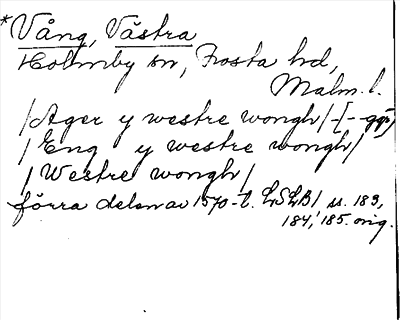 *Vång, Västra
Holmby sn, Frosta hd,
Malm. l.
/Ager y westre wongh/ -[- ggr]
/Eng y westre wongh/
/Westre wongh/
förra delen av 1570-t. LSLB/ ss. 183,
184, 185. orig.